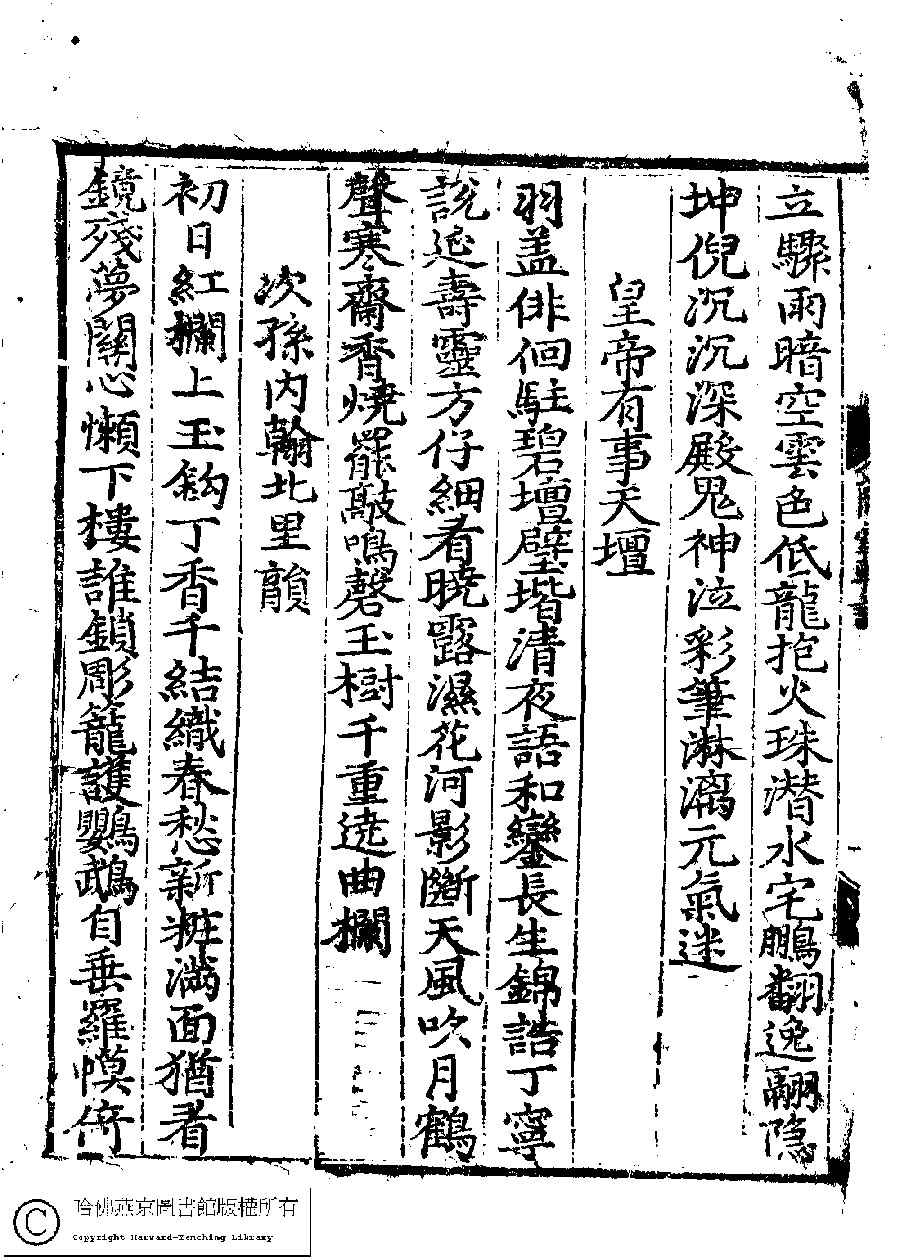 立驟雨暗空雲色低龍抱火珠潛水宅鵬翻逸翮隐
坤倪沉沉深殿鬼神泣彩筆淋漓元氣迷
皇帝有事天壇
羽盖俳佪駐碧壇壁堦清夜語和鑾長生錦誥丁寧
說延壽靈方仔細看暁露濕花河影斷天風吹月鶴
聲寒齋香燒罷敲鳴磬玉樹千重遶曲欄
次孫内翰北里韻
初日紅欄上玉鈎丁香千結織春愁新粧滿面猶看
鏡殘夢關心懶下樓誰鎖彫籠護鸚鵡自垂羅幙倚
哈佛燕京圖書館版權所有
Copyright Harvard-Yenching Library